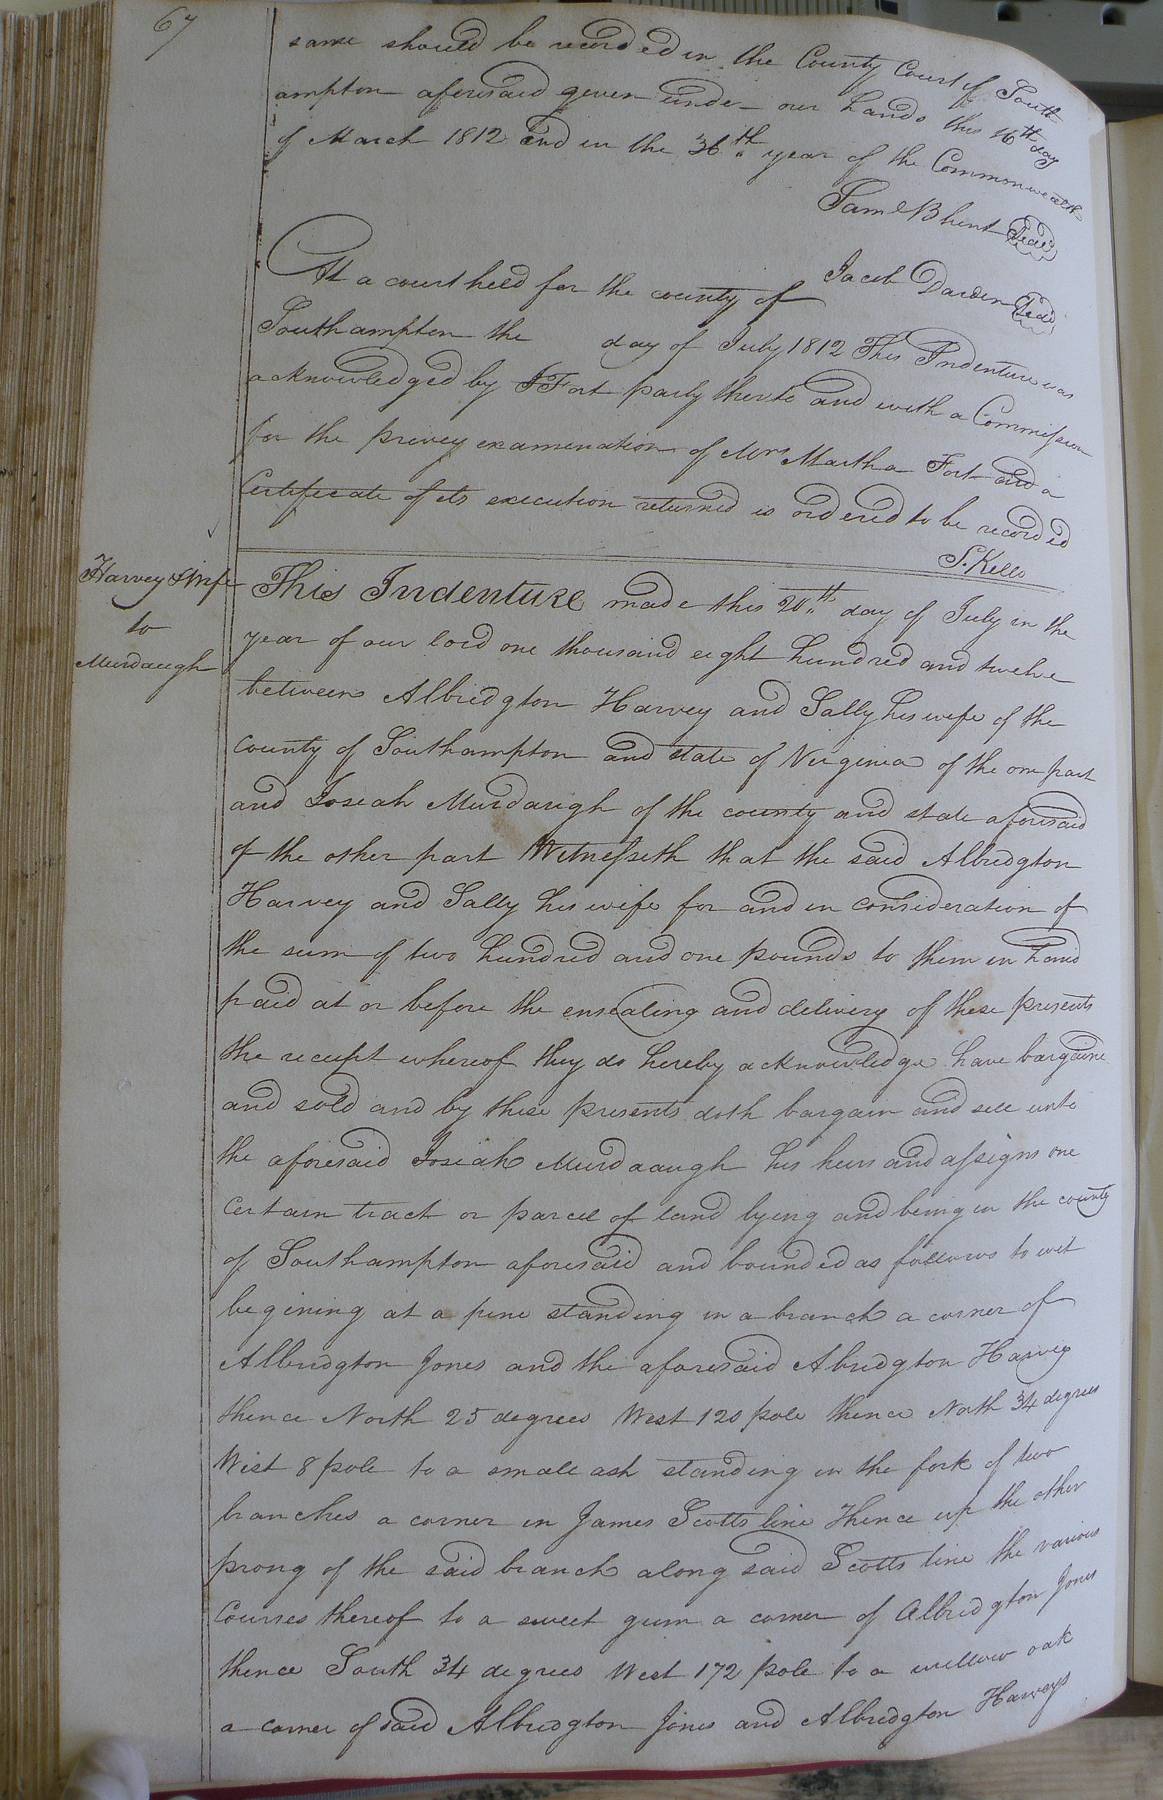 67
same should be recorded in the County Court of South
ampton aforesaid given under our hands this 16th day
of March 1812 and in the 36th year of the Commonwealth
Saml Blunt Seal
Jacob Darden Seal
At a court held for the county of
Southampton the day of July 1812 This Indenture was
acknowledged by J Fort party thereto and with a Commission
for the privey examenation of Mrs Martha Fort and a
Certificate of its execution returned is ordered to be recorded
S. Kello
Harvey & Wife
to
Murdaugh
This Indenture made this 20th day of July in the
year of our lord one thousand eight hundred and twelve
between Albridgton Harvey and Sally his wife of the
County of Southampton and state of Virginia of the one part
and Josiah Murdaugh of the county and state aforesaid
of the other part Witnesseth that the said Albridgton
Harvey and Sally his wife for and in consideration of
the sum of two hundred and one pounds to them in hand
paid at or before the ensealing and delivery of these presents
the receipt whereof they do hereby acknowledge have bargaine
and sold and by these presents doth bargain and sell unto
the aforesaid Josiah Murdaaugh his heirs and assigns one
certain tract or parcel of land lying and being in the county
of Southampton aforesaid and bounded as follows to wit
begining at a pine standing in a branch a corner of
Albridgton Jones and the aforesaid Abridgton Harvey
thence North 25 degrees West 120 pole thence North 34 degrees
West 8 pole to a small ash standing in the fork of two
branches a corner in James Scotts line thence up the other
prong of the said branch along said Scotts line the various
Courses thereof to a sweet gum a corner of Albridgton Jones
thence South 34 degrees West 172 pole to a willow oak
a corner of said Albridgton Jones and Albridgton Harveys